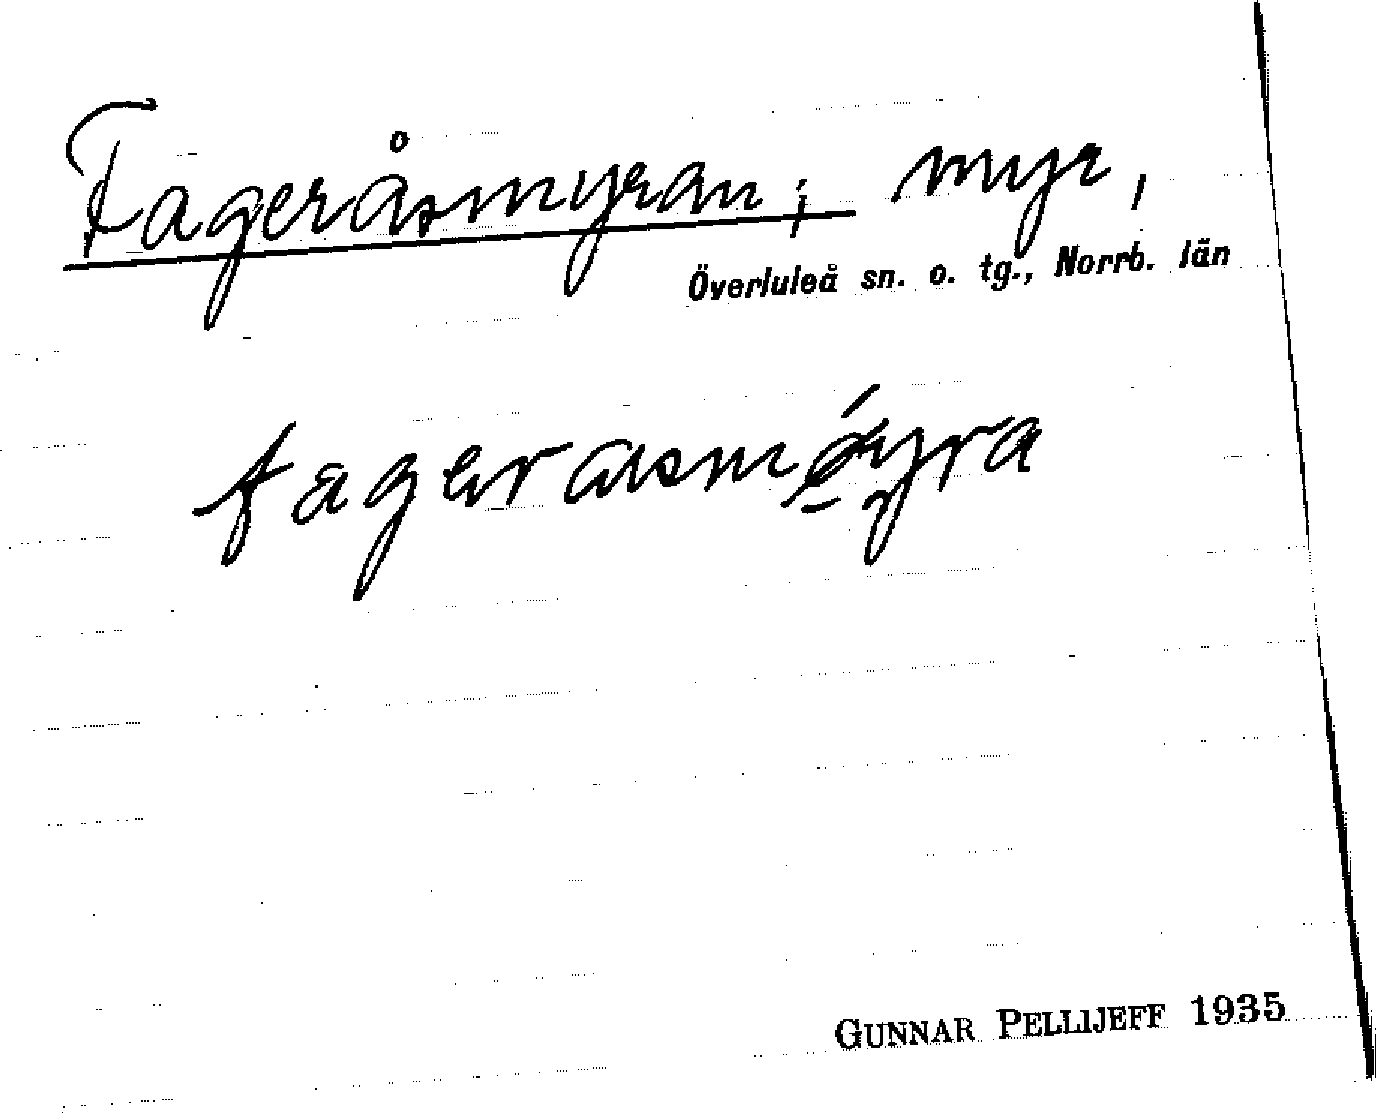 Fageråsmyran; myr,
Överluleå sn. o. tg., Norrb. län
GUNNAR PELLIJEFF 1935